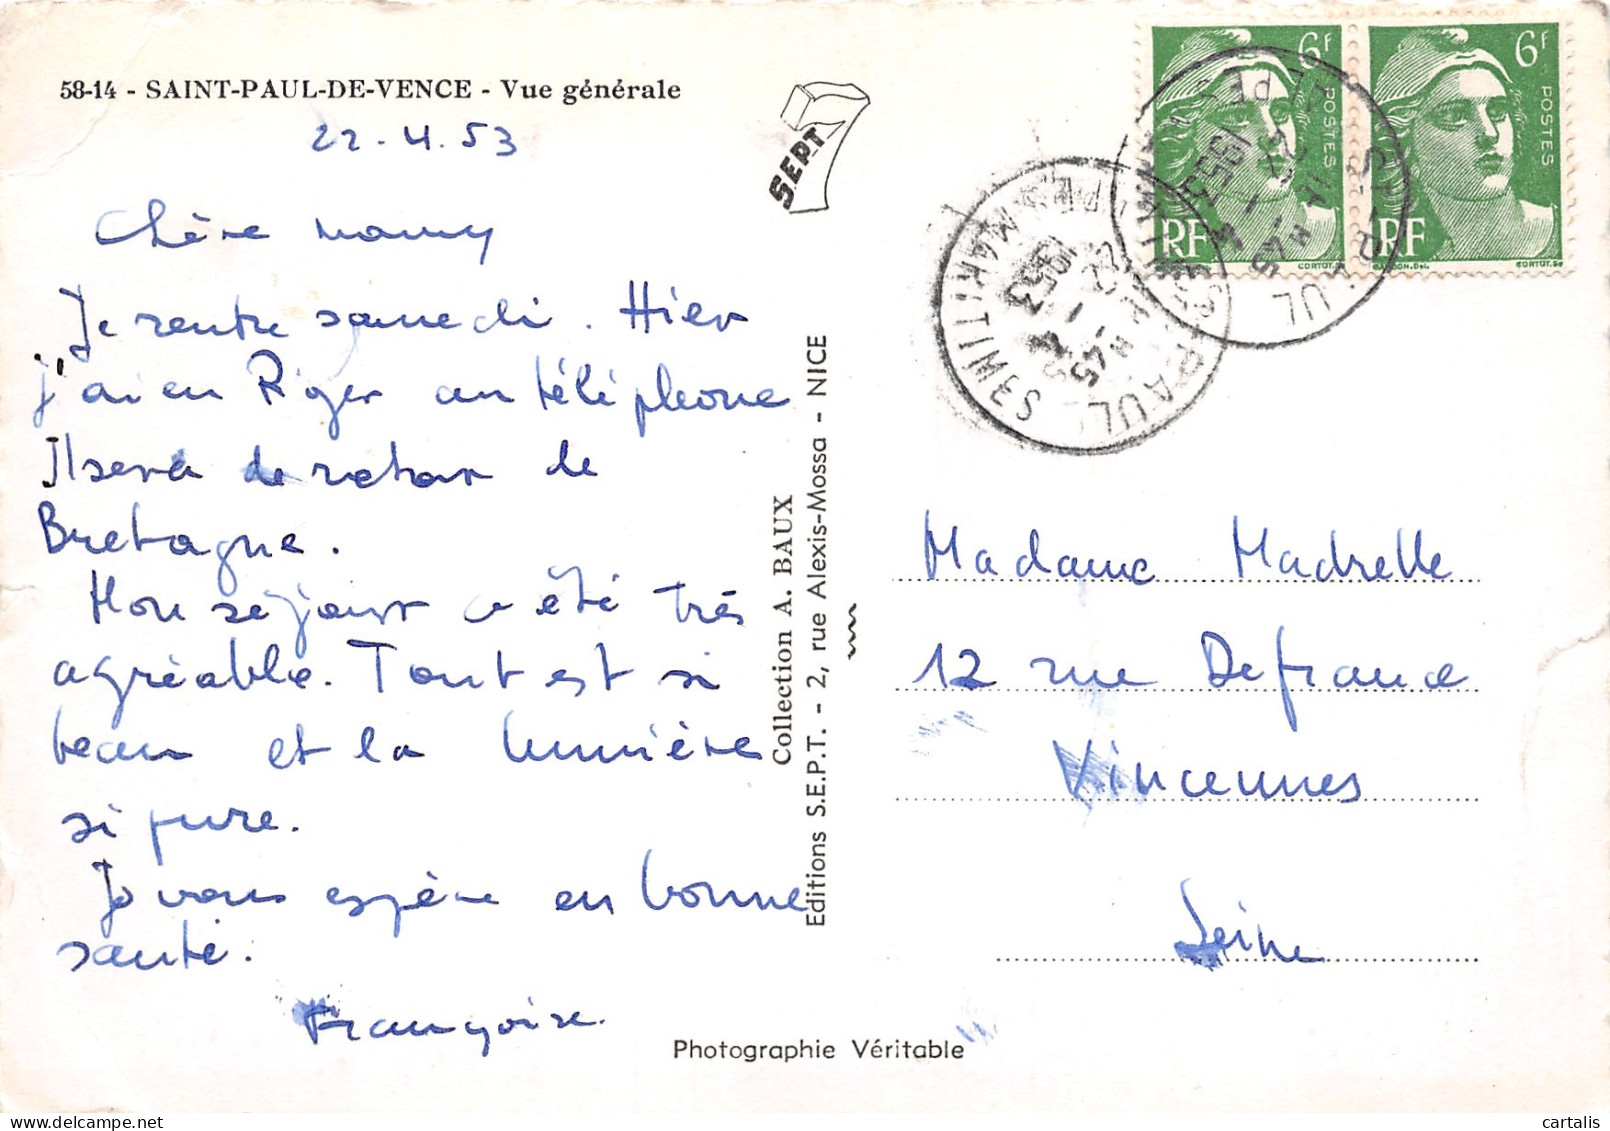 58-14 - SAINT-PAUL-DE-VENCE - Vue générale
22.4.53
Chère mamy
Je rentre samedi. Hier
j'ai eu Roger au téléphone
Il sera de retour de
Bretagne.
Mon séjour a été très
agréable. Tout est si
beau et la lumière
si pure.
Je vous espère en bonne
santé.
Françoise.
SEPT
Collection A. BAUX
Editions S.E.P.T. - 2, rue Alexis-Mossa - NICE
Photographie Véritable
6F
POSTES
RF
CORTOT.Sc
6F
POSTES
RF
GANDON.Del.
CORTOT.Sc
ST-PAUL
1953
ST-PAUL
ALPES MARITIMES
1953
Madame Madrelle
12 rue Defrance
Vincennes
Seine
cartalis
delcampe.net